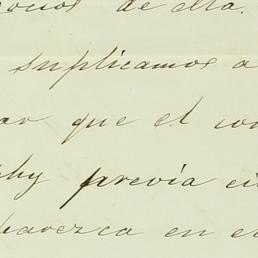 ocios de ella.
suplicamos a
ar que el con
hy previa ci
parezca en e